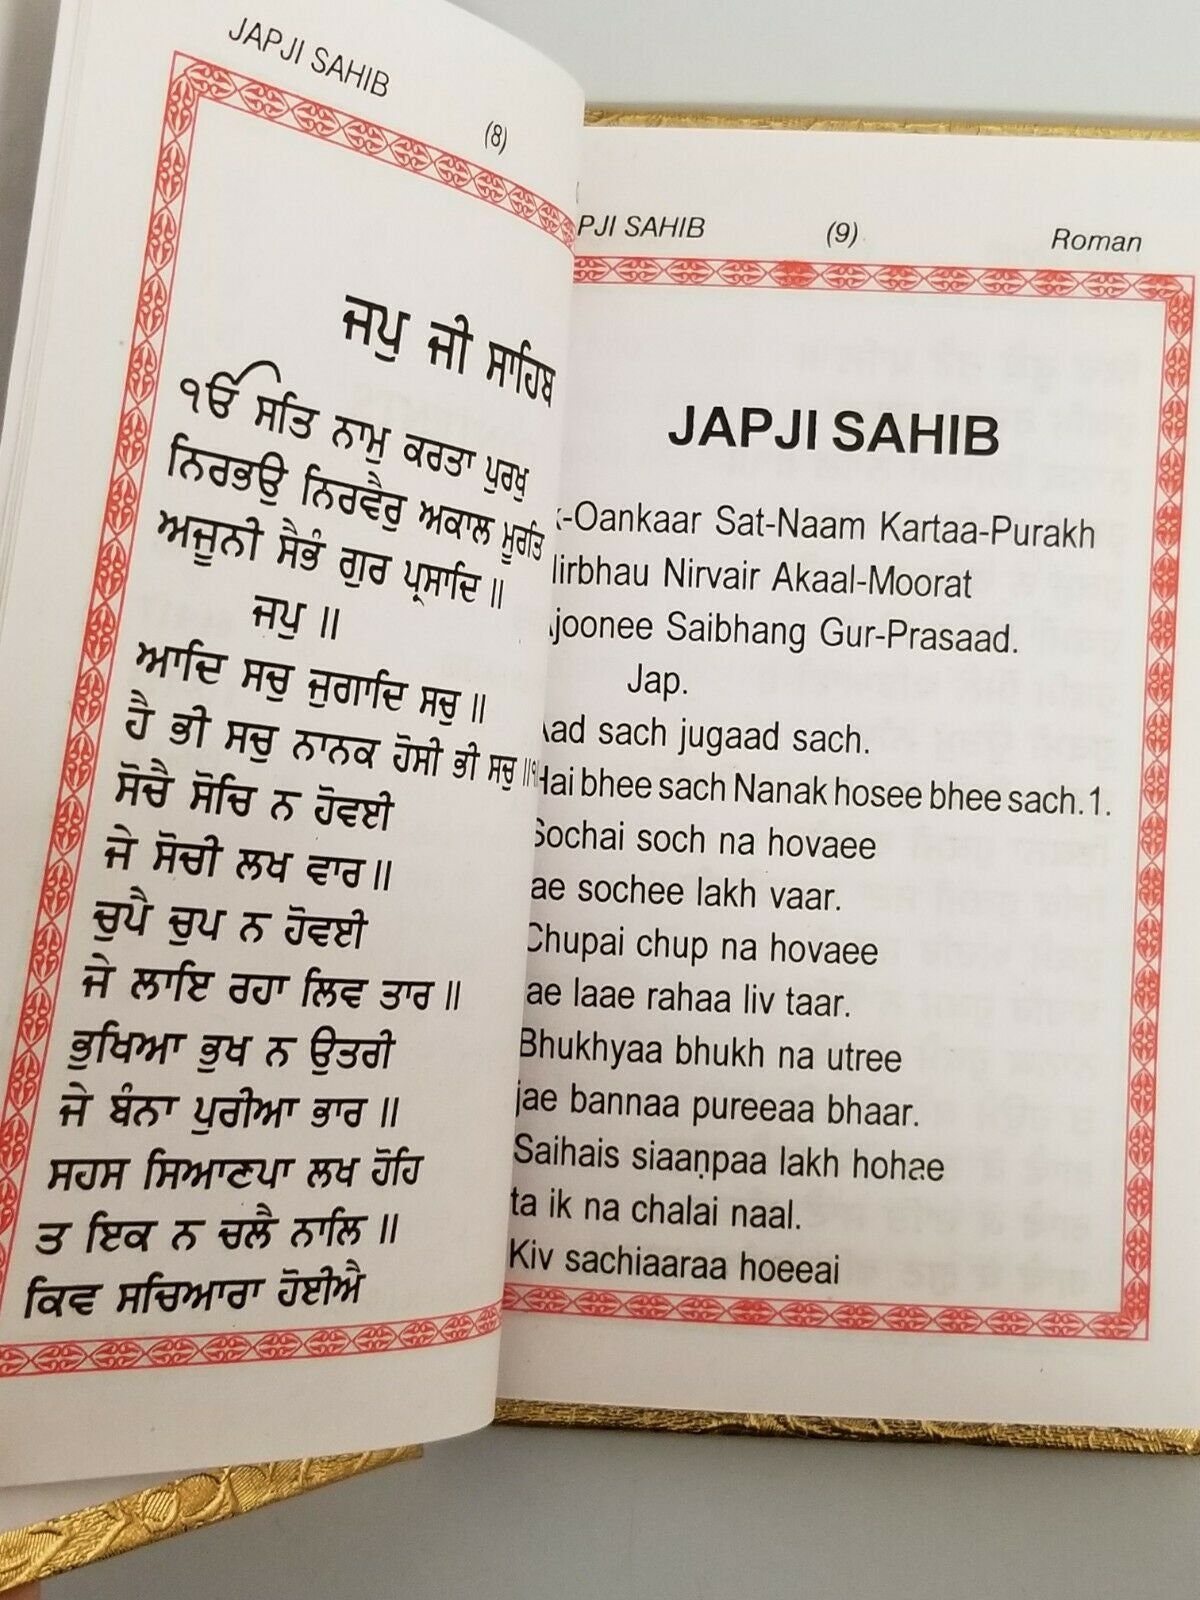 JAPJI SAHIB
(8)
ਜਪੁ ਜੀ ਸਾਹਿਬ
ੴ ਸਤਿ ਨਾਮੁ ਕਰਤਾ ਪੁਰਖੁ
ਨਿਰਭਉ ਨਿਰਵੈਰੁ ਅਕਾਲ ਮੂਰਤਿ
ਅਜੂਨੀ ਸੈਭੰ ਗੁਰ ਪ੍ਰਸਾਦਿ ॥
ਜਪੁ ॥
ਆਦਿ ਸਚੁ ਜੁਗਾਦਿ ਸਚੁ ॥
ਹੈ ਭੀ ਸਚੁ ਨਾਨਕ ਹੋਸੀ ਭੀ ਸਚੁ ॥੧
ਸੋਚੈ ਸੋਚਿ ਨ ਹੋਵਈ
ਜੇ ਸੋਚੀ ਲਖ ਵਾਰ ॥
ਚੁਪੈ ਚੁਪ ਨ ਹੋਵਈ
ਜੇ ਲਾਇ ਰਹਾ ਲਿਵ ਤਾਰ ॥
ਭੁਖਿਆ ਭੁਖ ਨ ਉਤਰੀ
ਜੇ ਬੰਨਾ ਪੁਰੀਆ ਭਾਰ ॥
ਸਹਸ ਸਿਆਣਪਾ ਲਖ ਹੋਹਿ
ਤ ਇਕ ਨ ਚਲੈ ਨਾਲਿ ॥
ਕਿਵ ਸਚਿਆਰਾ ਹੋਈਐ
PJI SAHIB
(9)
Roman
JAPJI SAHIB
k-Oankaar Sat-Naam Kartaa-Purakh
irbhau Nirvair Akaal-Moorat
joonee Saibhang Gur-Prasaad.
Jap.
Aad sach jugaad sach.
Hai bhee sach Nanak hosee bhee sach.1.
Sochai soch na hovaee
ae sochee lakh vaar.
Chupai chup na hovaee
ae laae rahaa liv taar.
Bhukhyaa bhukh na utree
jae bannaa pureeaa bhaar.
Saihais siaaṇpaa lakh hohae
ta ik na chalai naal.
Kiv sachiaaraa hoeeai